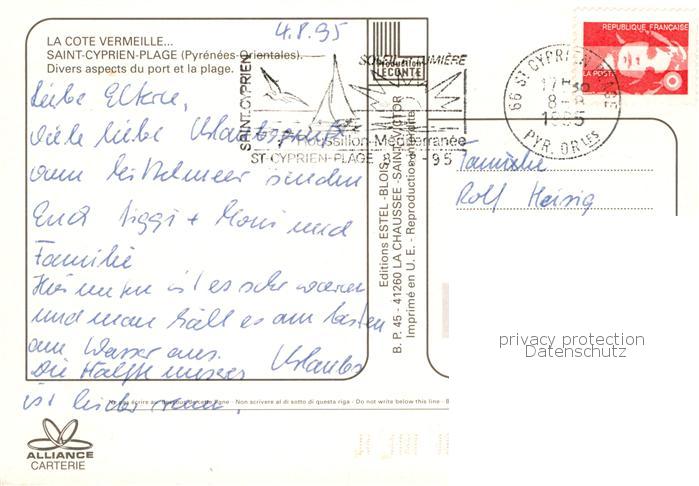 4.8.95
LA COTE VERMEILLE...
SAINT-CYPRIEN-PLAGE (Pyrénées-Orientales).
Divers aspects du port et la plage.
Liebe Eltern,
viele liebe Urlaubsgrüße
vom Mittelmeer senden
Euch Siggi + Moni und
Familie
Hier unten ist es sehr warm
und man hält es am besten
am Wasser aus.
Die Hälfte unseres Urlaubs
ist leider rum.
Ne pas écrire au-dessous de cette ligne - Non scrivere al di sotto di questa riga - Do not write below this line - B
ALLIANCE
CARTERIE
Production
LECONTE
Editions ESTEL - BLOIS
B. P. 45 - 41260 LA CHAUSSEE-SAINT-VICTOR
Imprimé en U. E. - Reproduction interdite
SAINT-CYPRIEN
SOLEIL LUMIÈRE
Roussillon-Méditerranée
ST-CYPRIEN-PLAGE 8-8-95
66 ST-CYPRIEN PLAGE
17H30
8-8
1995
PYR. OR LES
REPUBLIQUE FRANÇAISE
LA POSTE
Familie
Rolf Heisig
privacy protection
Datenschutz